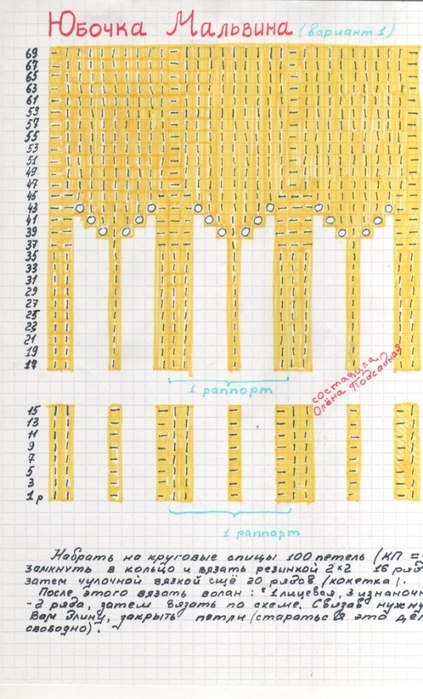 Юбочка Мальвина (вариант 1)
69
67
65
63
61
59
57
55
53
51
49
47
45
43
41
39
37
35
33
31
29
27
25
23
21
19
17
1 раппорт
составила
Олёна Подсадная
15
13
11
9
7
5
3
1 р
1 раппорт
Набрать на круговые спицы 100 петель (КП =
замкнуть в кольцо и вязать резинкой 2×2 16 ряд
затем чулочной вязкой ещё 20 рядов (кокетка).
После этого вязать волан: * 1 лицевая, 3 изнаночн
- 2 ряда, затем вязать по схеме. Связав нужну
Вам длину, закрыть петли (стараться это дел
свободно).